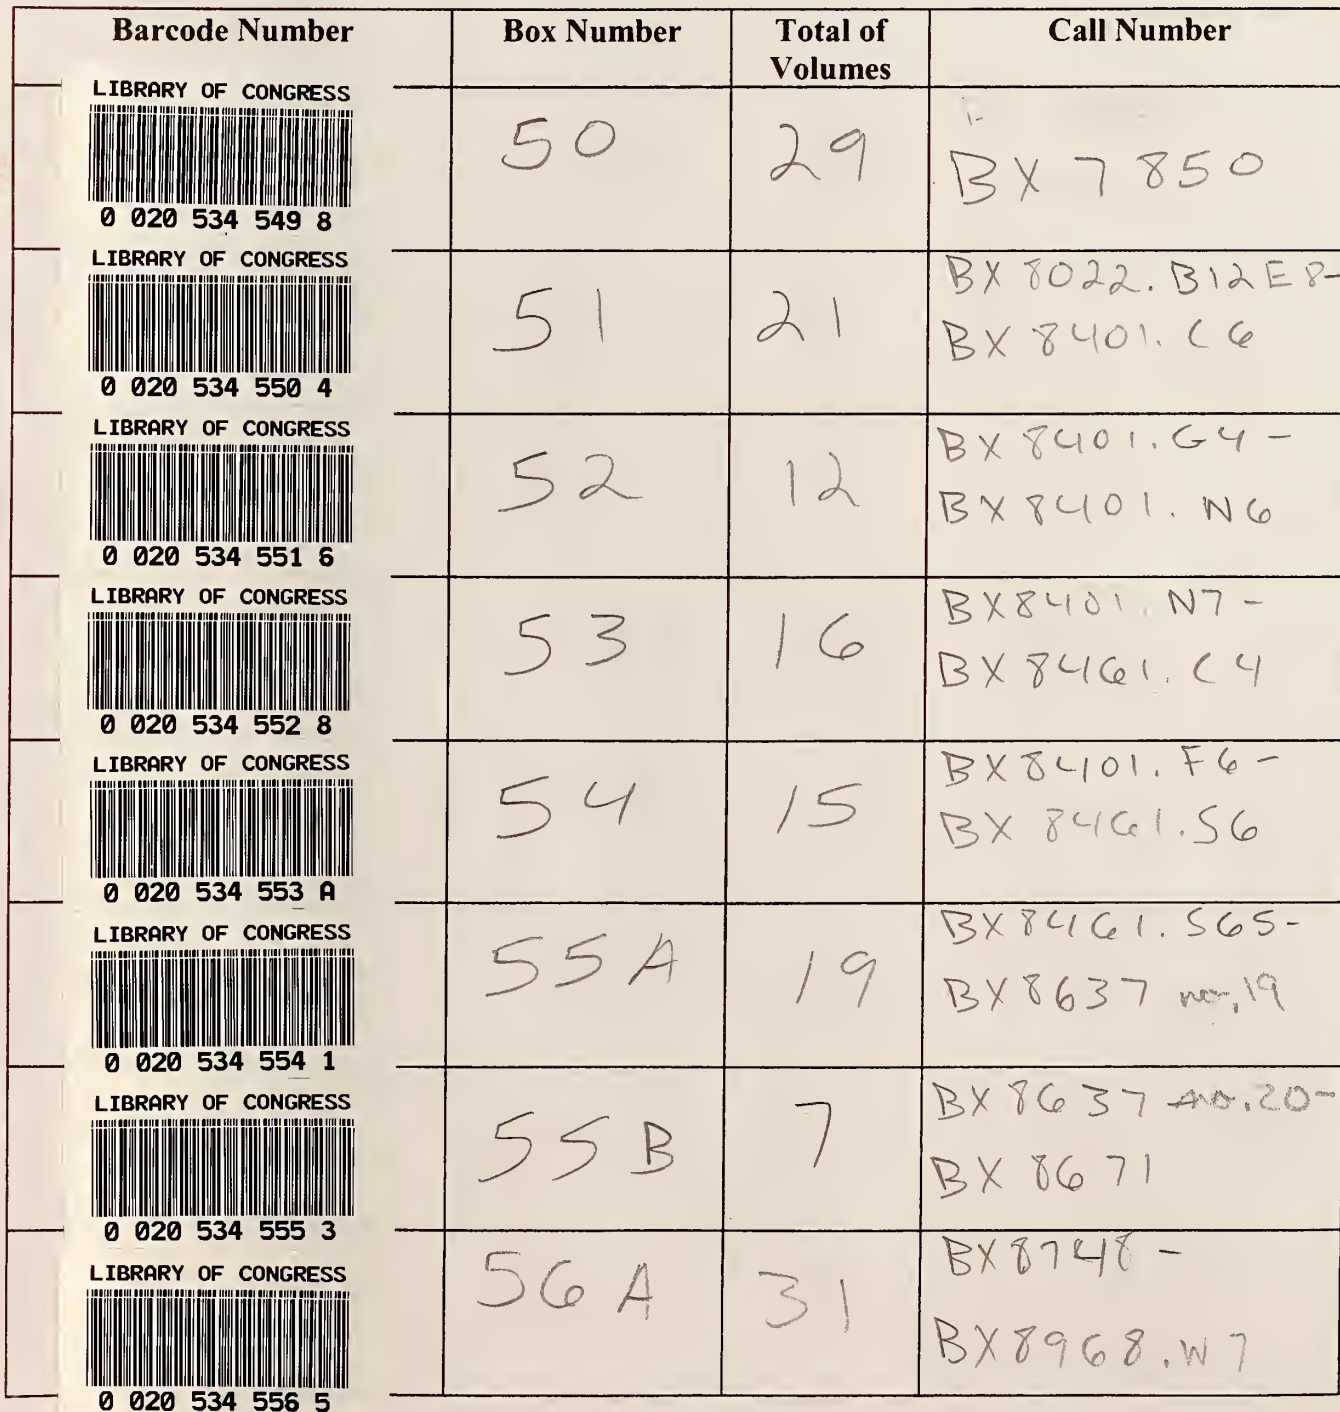 Barcode Number Box Number Total of Volumes Call Number
LIBRARY OF CONGRESS
0 020 534 549 8
50 29 BX 7850
LIBRARY OF CONGRESS
0 020 534 550 4
51 21 BX 8022.B12E8-
BX 8401.C6
LIBRARY OF CONGRESS
0 020 534 551 6
52 12 BX 8401.G4-
BX 8401.N6
LIBRARY OF CONGRESS
0 020 534 552 8
53 16 BX8401.N7-
BX 8461.C4
LIBRARY OF CONGRESS
0 020 534 553 A
54 15 BX8401.F6-
BX 8461.S6
LIBRARY OF CONGRESS
0 020 534 554 1
55A 19 BX8461.S65-
BX8637 no.19
LIBRARY OF CONGRESS
0 020 534 555 3
55B 7 BX 8637 no.20-
BX 8671
LIBRARY OF CONGRESS
0 020 534 556 5
56A 31 BX8748-
BX8968.W7